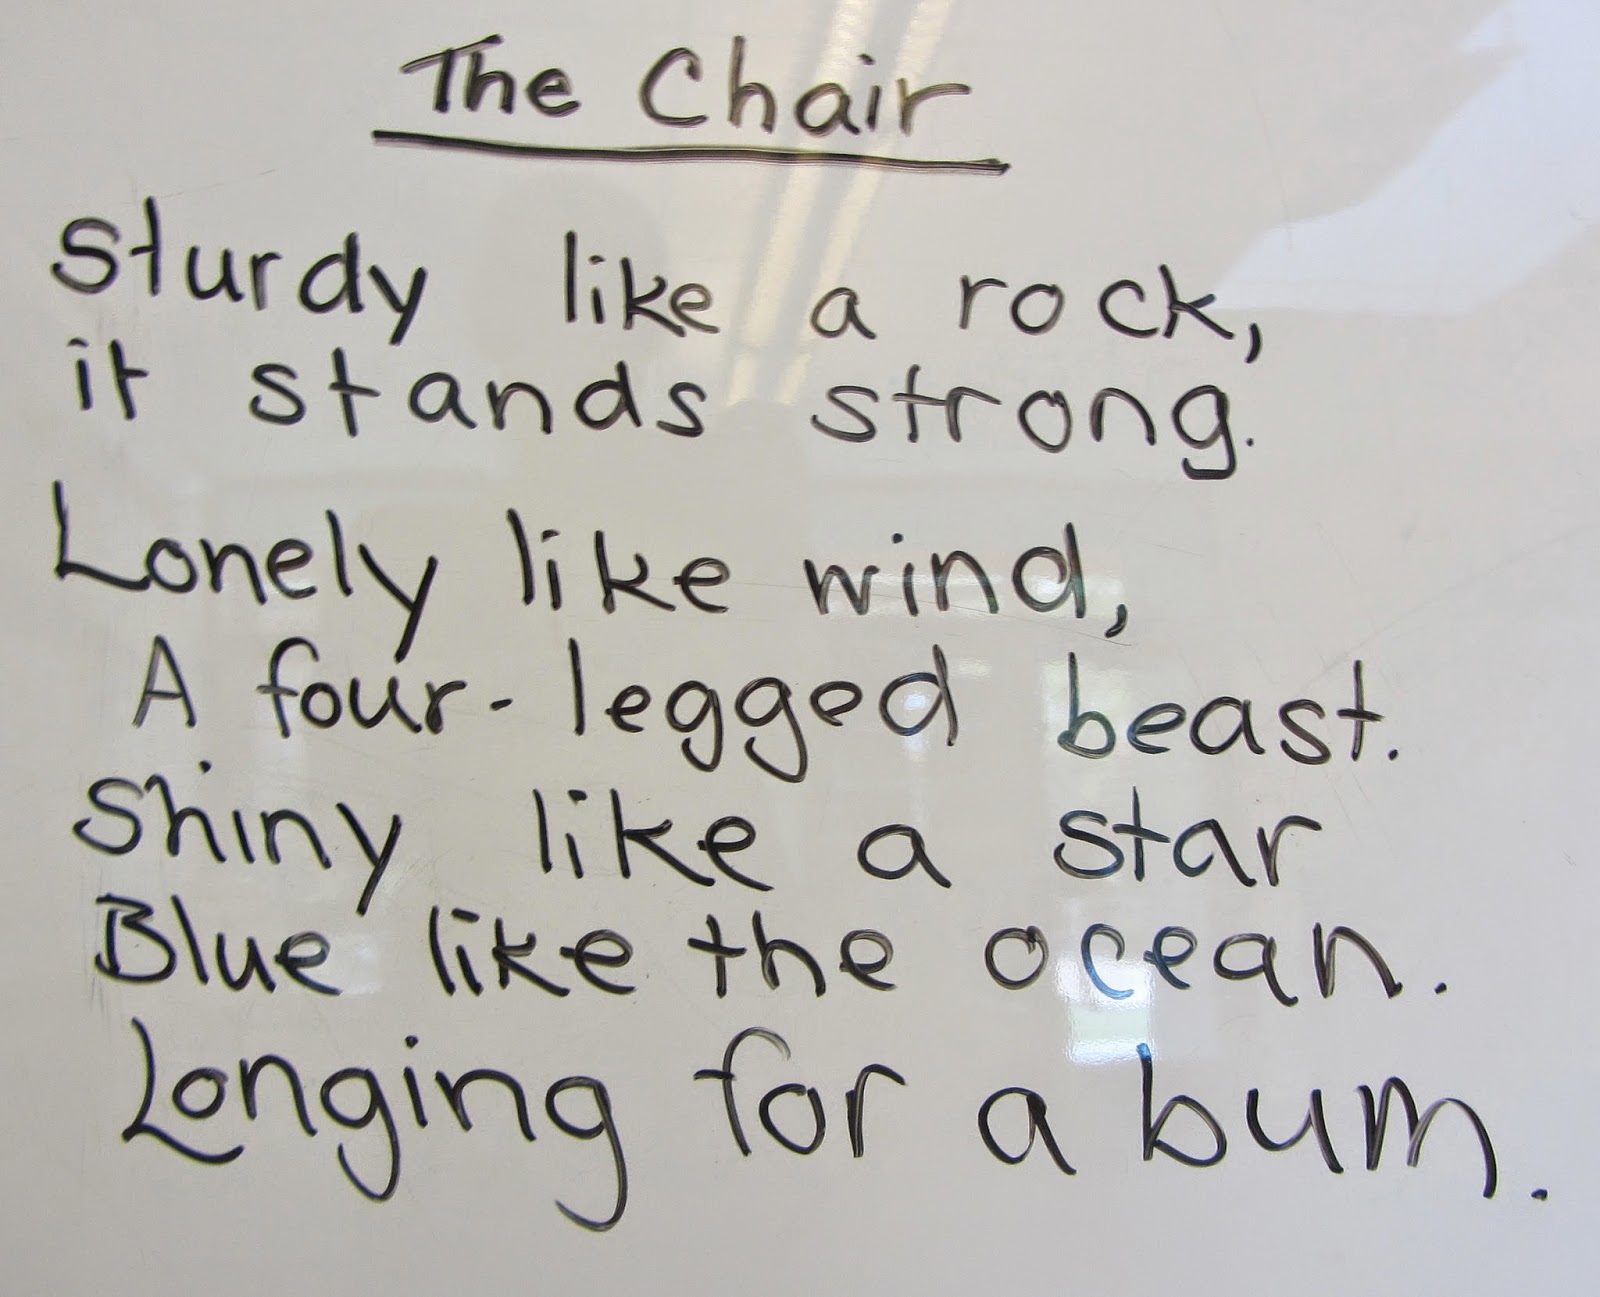 The Chair
Sturdy like a rock,
it stands strong.
Lonely like wind,
A four-legged beast.
Shiny like a star
Blue like the ocean.
Longing for a bum.